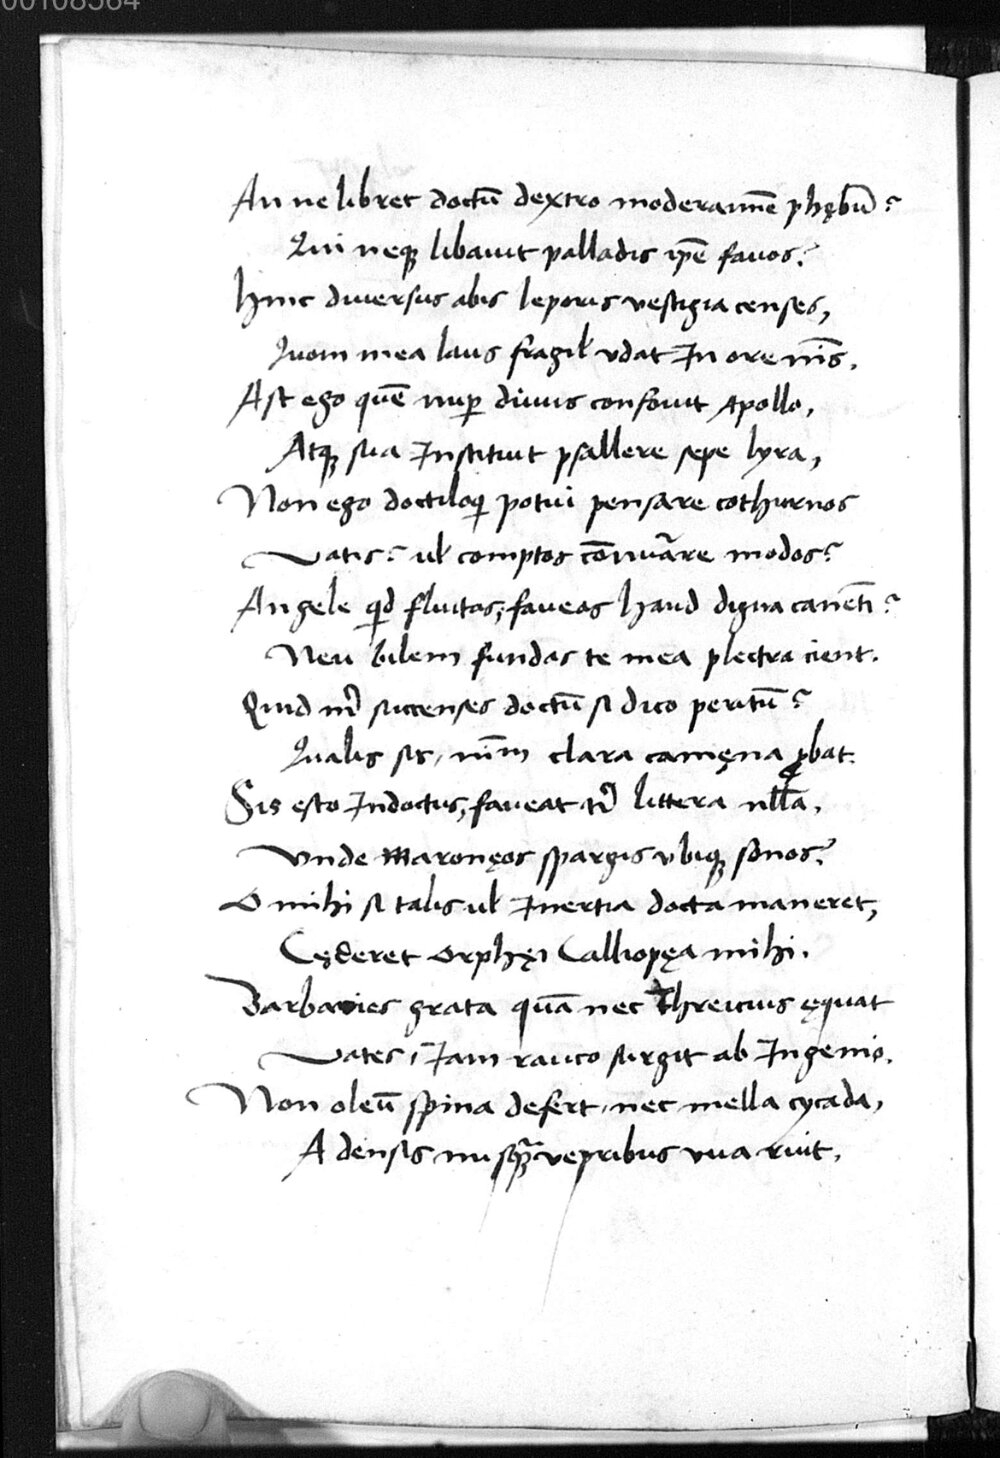 00108564
An ne libret doctū dextro moderamīe phębū?
Qui neqȝ libauit palladis ip̄e fauos?
Hinc diuersus abis leporis vestigia censes,
Quom mea laus fragil' vdat In ore nīs.
Ast ego quē nuꝑ diuus confouit Apollo,
Atqȝ sua Instituit psallere sępe lyra,
Non ego doctiloqi potui pensare cothurnos
Vatis? ul' comptos cōnuāre modos?
Angele qid fluitas, faueas haud digna canētī?
Neu bilem fundas te mea plectra cient.
Quid mī succenses doctū si dico peritū?
Qualis sis, nīm clara camęna ꝓbat.
Sis ęsto Indoctus, faueat tī littera nlla,
Vnde Maronęos spargis vbiqȝ sonos?
O mihi si talis ul' Inertia docta maneret,
Cęderet Orphęi Calliopęa mihi.
Barbaries grata quā nec threicius ęquat
Vates, Iam rauco surgit ab Ingenio.
Non oleū spina defert, nec mella cycada,
A densis nusqȝ̄ vepribus vua ruit.